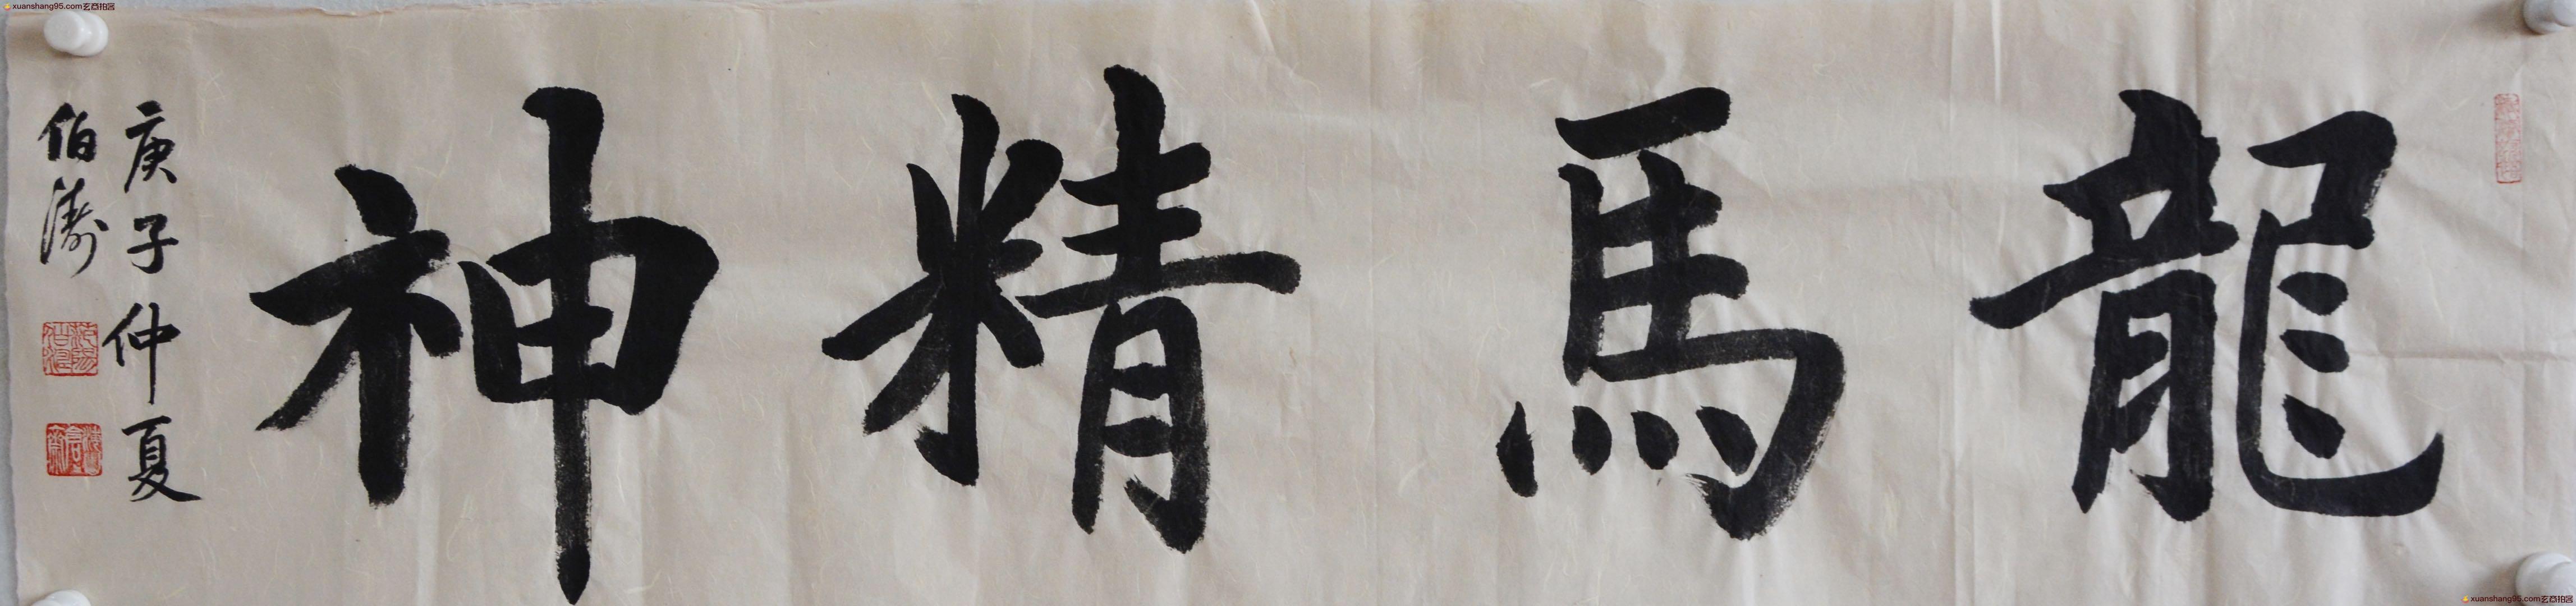 xuanshang95.com玄商拍客
龍馬精神
庚子仲夏
伯濤
xuanshang95.com玄商拍客